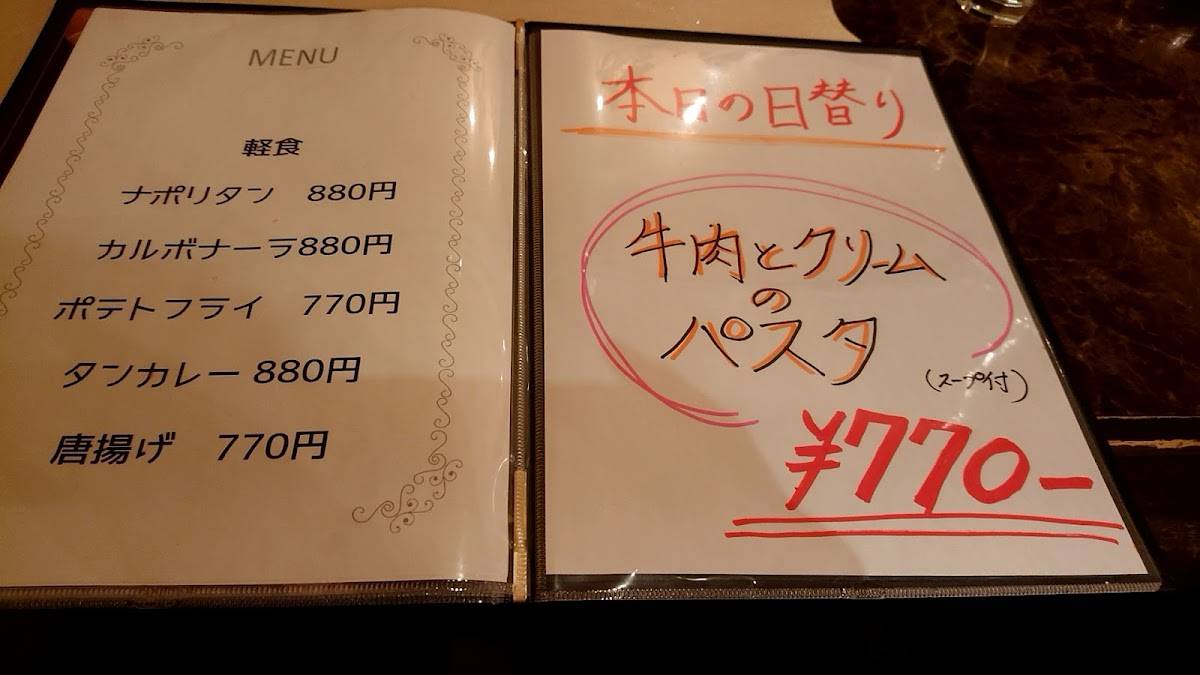 MENU
軽食
ナポリタン 880円
カルボナーラ880円
ポテトフライ 770円
タンカレー 880円
唐揚げ 770円
本日の日替り
牛肉とクリーム
の
パスタ
(スープ付)
¥770-